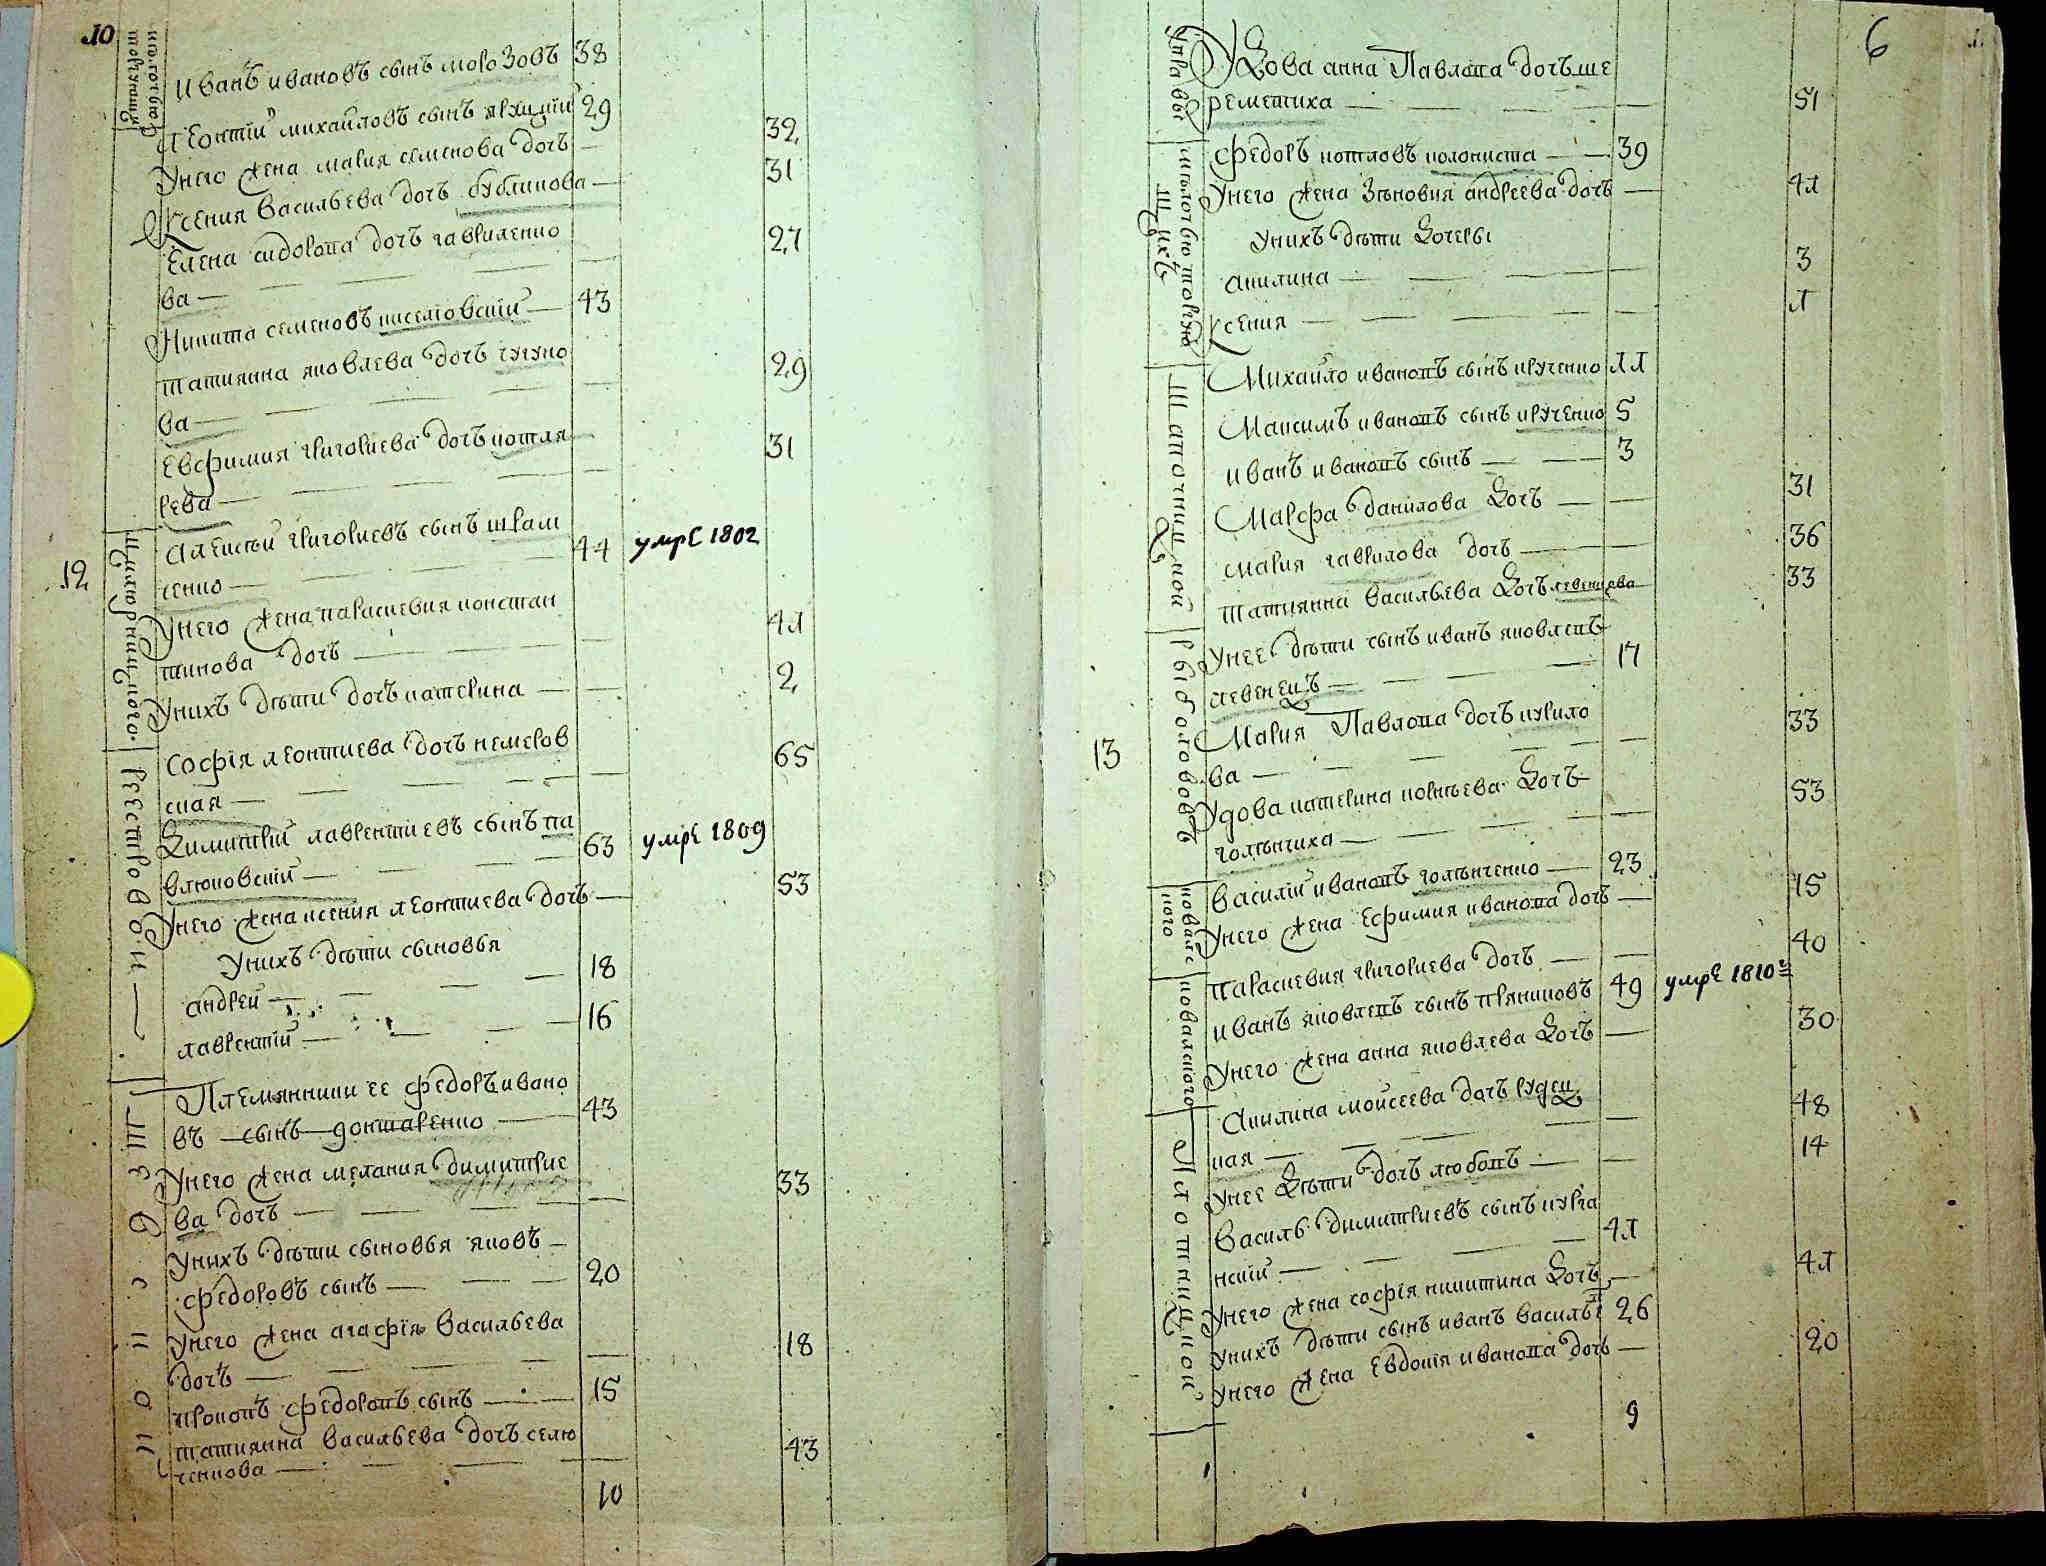 10
иванъ ивановъ сынъ морозовъ 38
леонтій михайловъ сынъ 29
унего жена мария семенова дочь — 32
ксения васильева дочь бубликова — 31
елена сидорова дочь гавриленко
ва — 27
никита семеновъ киселювский — 43
татиянна яковлева дочь чугуно
ва — 29
евфимия григориева дочь котля
рева — 31
12
алексѣй григориевъ сынъ крам
сенко — 44 умре 1802
унего жена параскевия констан
тинова дочь — 41
унихъ дѣти дочь катерина — 2
софія леонтиева дочь немеров
ская — 65
димитрій лаврентиевъ сынъ па
влюковскій — 63 умре 1809
унего жена ксения леонтиева дочь — 53
унихъ дѣти сыновья
андрей — 18
лаврентій — 16
племянники ее федоръ ивано
въ сынъ доншаренко — 43
унего жена мелания димитрие
ва дочь — 33
унихъ дѣти сыновья яковъ —
федоровъ сынъ — 20
унего жена агафія васильева
дочь — 18
прокопъ федоровъ сынъ — 15
татиянна васильева дочь селю
ченкова — 43
10
реестровой
6
удова анна павлова дочь ше
реметиха — 51
федоръ котловъ колониста — 39
унего жена зѣновия андреева дочь — 41
унихъ дѣти дочеры
акилина — 3
ксения — 1
михайло ивановъ сынъ крученко 11
максимъ ивановъ сынъ крученко 5
иванъ ивановъ сынъ — 3
марфа данилова дочь — 31
мария гаврилова дочь — 36
татиянна васильева дочь левенцева 33
унее дѣти сынъ иванъ яковлевъ
левенецъ — 17
13
мария павлова дочь курило
ва — 33
удова катерина корнѣева дочь
голѣнчиха — 53
василій ивановъ голѣнченко — 23
унего жена ефимия иванова дочь — 15
параскевия григориева дочь — 40
иванъ яковлевъ сынъ пряниковъ 49 умре 1810
унего жена анна яковлева дочь — 30
акилина моисеева дочь рудец
кая — 48
унее дѣти дочь любовь — 14
василь димитриевъ сынъ курга
нскій — 41
унего жена софія никитина дочь — 41
унихъ дѣти сынъ иванъ василье 26
унего жена евдокія иванова дочь — 20
9
шапочникной
рыболововъ
ковалского